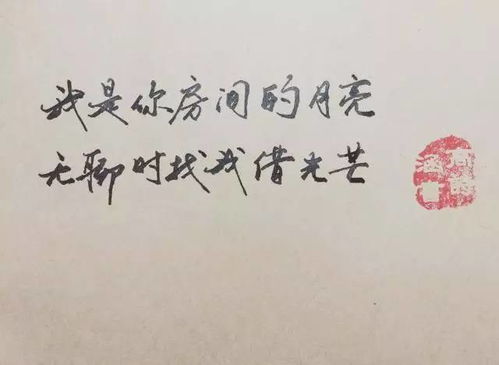 我是你房间的月亮
无聊时找我借光芒